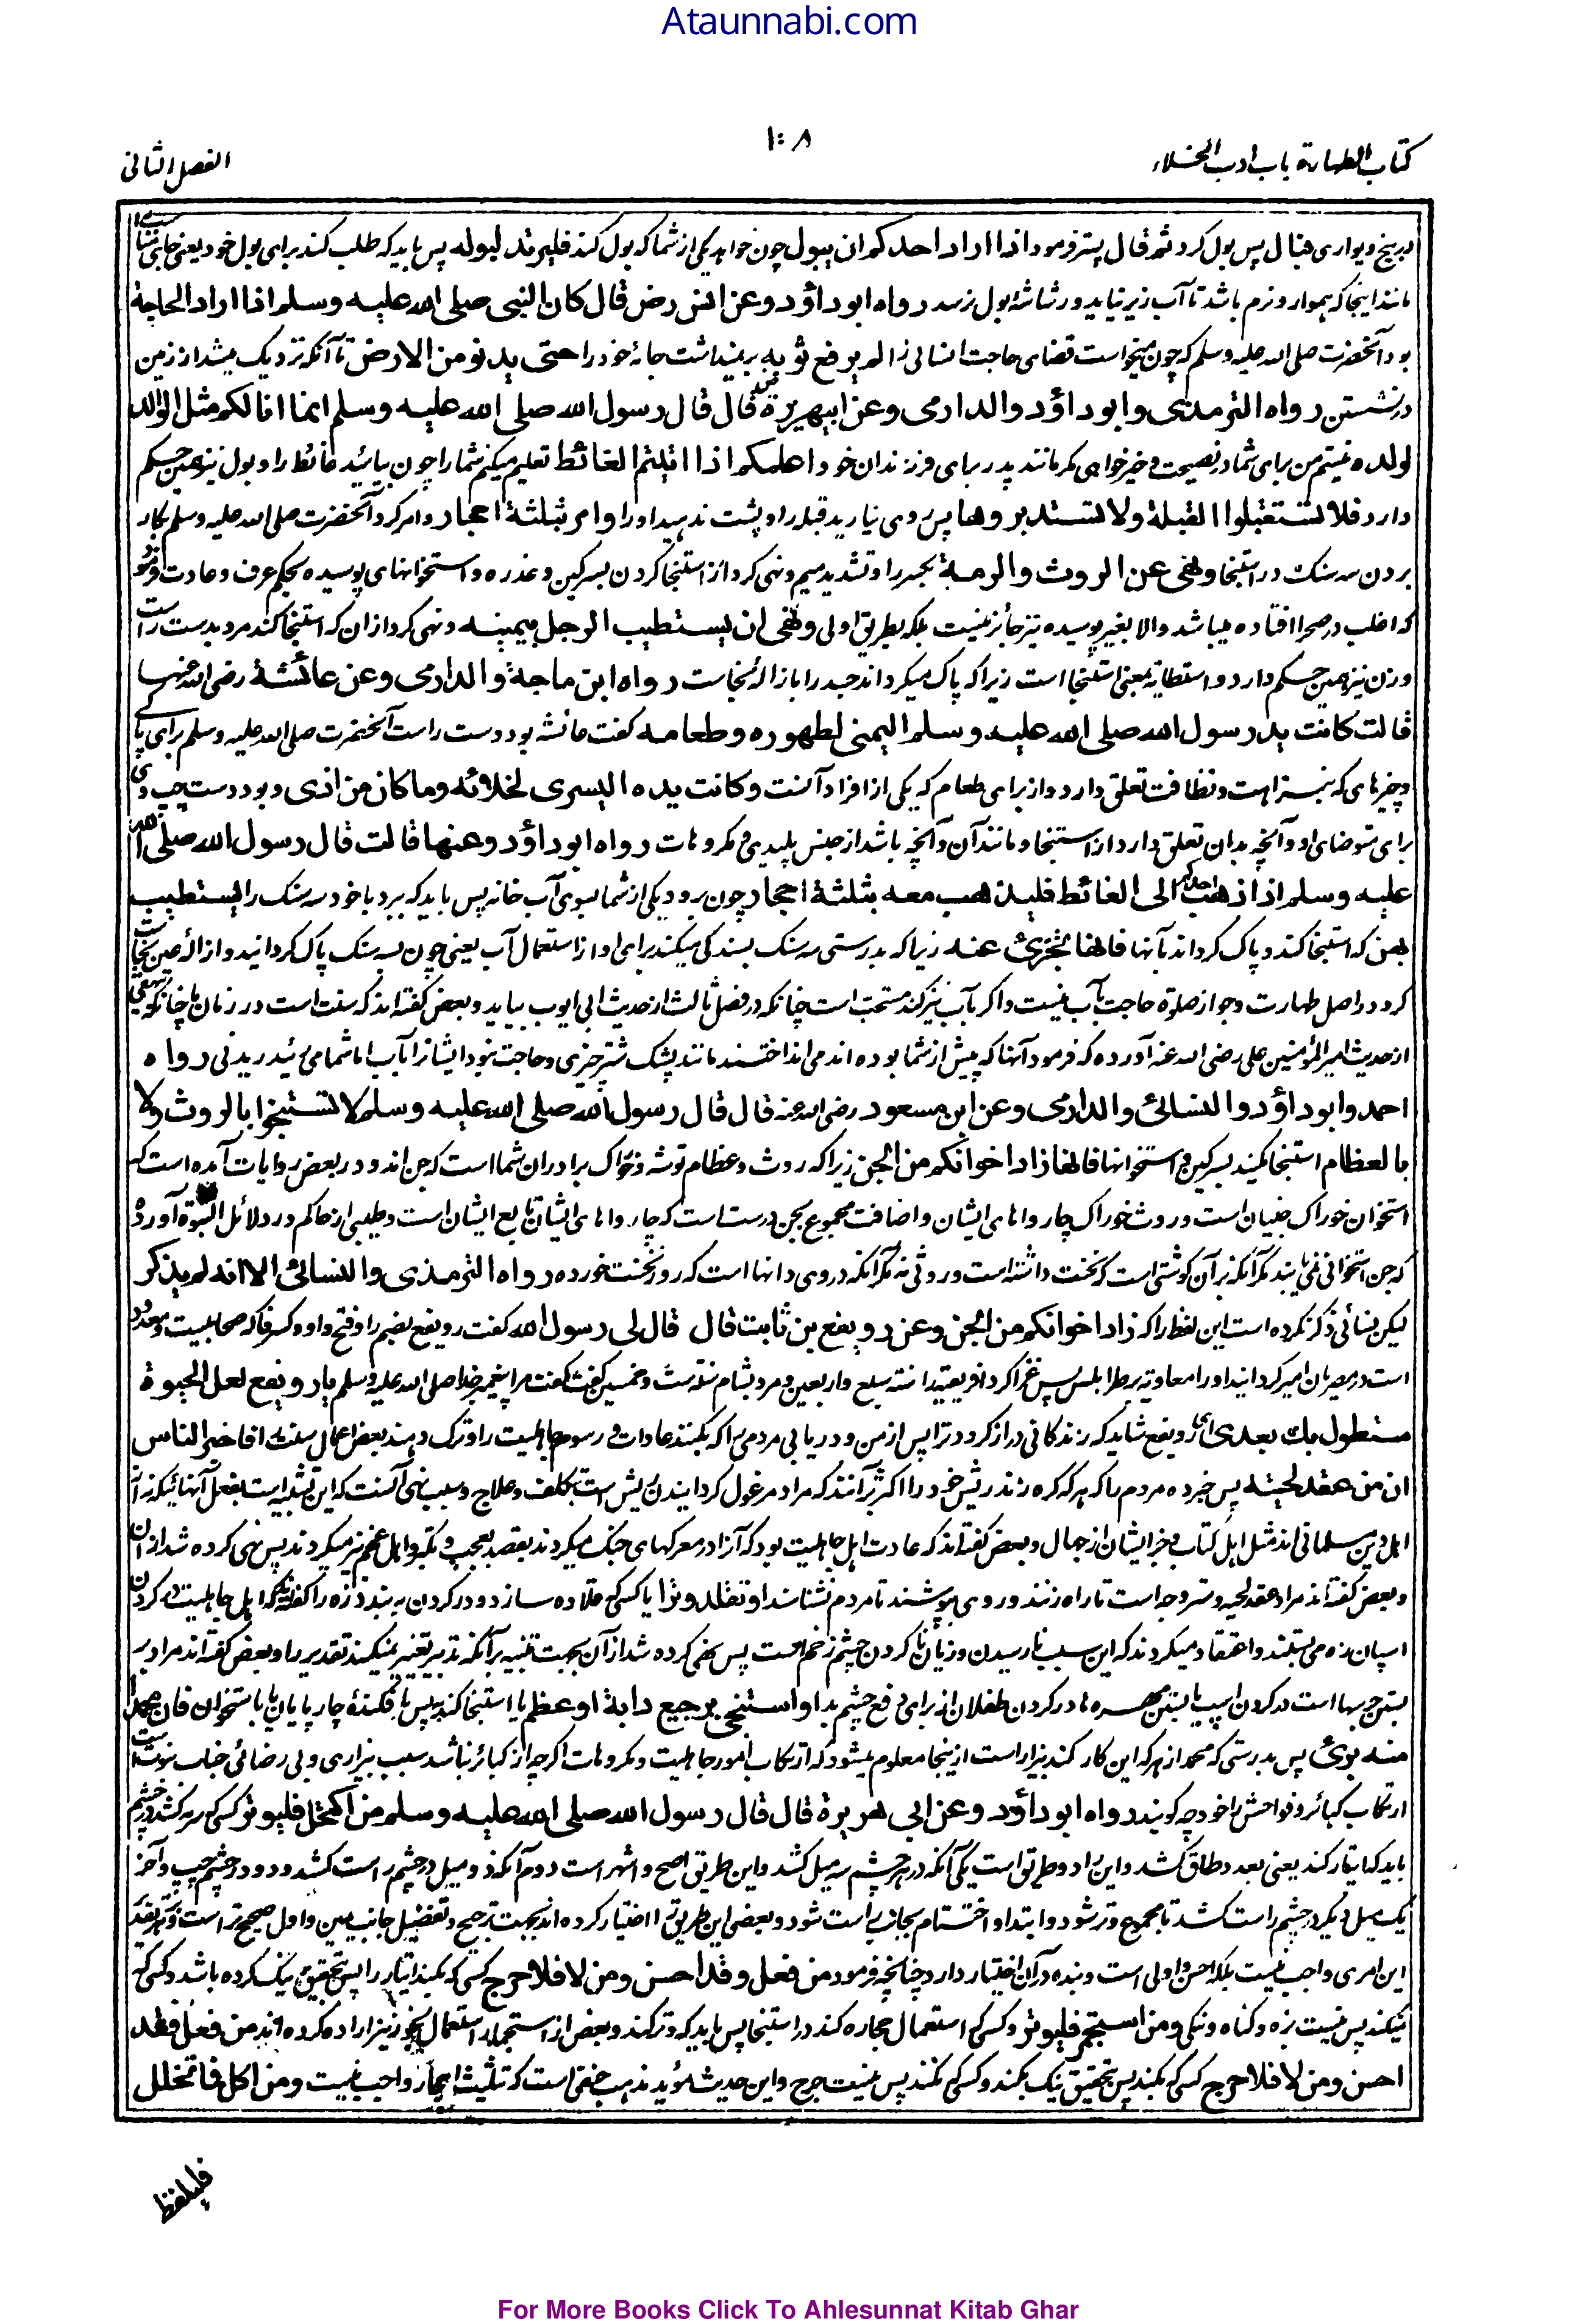 Ataunnabi.com
كتاب الطهارة باب ادب الخلاء
۱۰۸
الفصل الثانی
در بیخ دیواری فبال پس بول کرد ثم قال پستر فرمود اذا اراد احدكم ان يبول چون خواهد یکی از شما که بول کند فليرتد لبوله پس باید که طلب کند برای بول خود یعنی جای
مانند اینجا که هموار و نرم باشد تا آب زیر نیاید و رشاشۀ بول نرسد رواه ابو داؤد وعن انس رض قال كان النبى صلى الله عليه وسلم اذا اراد الحاجة
بود آنحضرت صلی الله علیه وسلم که چون میخواست قضای حاجت انسانی را لم يرفع ثوبه بر نمیداشت جامۀ خود را حتى يدنو من الارض تا آنکه نزدیک میشد از زمین
در نشستن رواه الترمذى وابو داؤد والدارمى وعن ابيهريرة قال قال رسول الله صلى الله عليه وسلم انما انا لكم مثل الوالد
لولده نیستم من برای شما در نصیحت و خیر خواهی مگر مانند پدر برای فرزندان خود اعلمكم اذا اتيتم الغائط تعلیم میکنم شما را چون بیائید غائط را و بول نیز همین حکم
دارد فلا تستقبلوا القبلة ولا تستدبروها پس روی نیارید قبله را و پشت ندهید او را وامر بثلثة احجار و امر کرد آنحضرت صلی الله علیه وسلم بکار
بردن سه سنگ در استنجا ونهى عن الروث والرمة بکسر را و تشدید میم و نهی کرد از استنجا کردن بسرگین و عذره و استخوانهای پوسیده بحکم عرف و عادت
که اغلب در صحرا افتاده میباشد والا بغیر پوسیده نیز جائز نیست بلکه بطریق اولی ونهى ان يستطيب الرجل بيمينه و نهی کرد از ان که استنجا کند مرد بدست راست
و زن نیز همین حکم دارد و استطابة بمعنی استنجا است زیرا که پاک میگرداند جسد را بازالۀ نجاست رواه ابن ماجة والدارمى وعن عائشة رضى الله عنها
قالت كانت يد رسول الله صلى الله عليه وسلم اليمنى لطهوره وطعامه گفت عائشه بود دست راست آنحضرت صلی الله علیه وسلم برای
و چیزهای که بنزاهت و نظافت تعلق دارد و از برای طعام که یکی از افراد آنست وكانت يده اليسرى لخلائه وما كان من اذى و بود دست چپ وی
برای متوضای او و آنچه بدان تعلق دارد از استنجا و مانند آن و آنچه باشد از جنس پلیدی و مکروهات رواه ابو داؤد وعنها قالت قال رسول الله صلى الله
عليه وسلم اذا ذهب احدكم الى الغائط فليذهب معه بثلثة احجار چون رود یکی از شما بسوی آب خانه پس باید که ببرد با خود سه سنگ را يستطيب
بهن که استنجا کند و پاک گرداند بآنها فانها تجزئ عنه زیرا که بدرستی سه سنگ بسندگی میکند برای او از استعمال آب یعنی چون بسه سنگ پاک گردانید و ازالۀ عین نجاست
کرد در اصل طهارت و جواز صلوة حاجت بآب نیست و اگر بآب نیز کند مستحب است چنانکه در فصل ثالث از حدیث ابی ایوب بیاید و بعض گفته اند که سنت است در زمان ما چنانکه
از حدیث امیر المؤمنین علی رضی الله عنه آورده که فرمود آنها که پیش از شما بوده اند می انداختند مانند پشک شتر چیزی و حاجت نبود ایشانرا بآب اما شما می رواه
احمد وابو داؤد والنسائى والدارمى وعن ابن مسعود رضى الله عنه قال قال رسول الله صلى الله عليه وسلم لا تستنجوا بالروث ولا
بالعظام استنجا مکنید بسرگین و استخوانها فانها زاد اخوانكم من الجن زیرا که روث و عظام توشه و خوراک برادران شما است که جن اند و در بعض روایات آمده است که
استخوان خوراک جنیان است و روث خوراک چارواهای ایشان و اضافت مجموع بجن درست است که چارواهای ایشان تابع ایشان است و طیبی از حاکم در دلائل النبوة آورده
که جن استخوانی نمی یابند مگر آنکه بر آن گوشتی است که نخست داشته است و روثی نه مگر آنکه در وی دانها است که روز نخست خورده رواه الترمذى والنسائى الا انه لم يذكر
لیکن نسائی ذکر نکرده است این لفظ را که زاد اخوانكم من الجن وعن رويفع بن ثابت قال قال لى رسول الله گفت رویفع بضم را و فتح واو و کسر فا که صحابیست و معدود
است در مصریان امیر گردانید او را معاویه بر طرابلس پس غزا کرد افریقیه را سنه سبع و اربعین و مرد بشام سنه ست و خمسین گفت گفت مرا پیغمبر خدا صلی الله علیه وسلم يا رويفع لعل الحيوة
ستطول بك بعدى ای رویفع شاید که زندگانی دراز گردد ترا پس از من و دریابی مردمی را که بکنند عادات و رسوم جاهلیت را و ترک دهند بعض اعمال سنت را فاخبر الناس
ان من عقد لحيته پس خبر ده مردم را که هر که گره زند ریش خود را اکثر بر آنند که مراد مرغول گردانیدن ریش است بتکلف و علاج و سبب نهی آنست که این تشبیه است بفعل آنهائیکه نه از
اهل دین مسلمانی اند مثل اهل کتاب و جز ایشان از جمال و بعض گفته اند که عادت اهل جاهلیت بود که آنرا در معرکهای جنگ میکردند بقصد تعجب و تکبر و اهل عجم نیز میکردند پس نهی کرده شد از آن
و بعض گفته اند مراد عقد لحیه است تا راه زنند و روی بپوشند تا مردم نشناسند او تقلد وترا یا کسی که قلاده سازد و در گردن به بندد زه را گفته اند که اهل جاهلیت در گردن
اسپان زه می بستند و اعتقاد میکردند که این سبب نارسیدن و زیان ناکردن چشم زخم است پس نهی کرده شد از آن بجهت تنبیه بر آنکه تدبیر تغییر نمیکند تقدیر را و بعض گفته اند مراد بر
بستن جرسها است در گردن اسپ یا بستن مهره ها در گردن طفلان از برای دفع چشم بد او استنجى برجيع دابة او عظم یا استنجا کند بپس افگندۀ چارپایان یا باستخوان فان محمدا
منه برئ پس بدرستی که محمد از هر که این کار کند بیزار است ازینجا معلوم میشود که ارتکاب امور جاهلیت و مکروهات اگرچه از کبائر نباشد سبب بیزاری و بی رضائی جناب نبوت است
ارتکاب کبائر و فواحش را خود چه گویند رواه ابو داؤد وعن ابى هريرة قال قال رسول الله صلى الله عليه وسلم من اكتحل فليوتر کسی که سرمه کشد در چشم
باید که ایتار کند یعنی بعدد طاق کشد و این را دو طریق است یکی آنکه در هر چشم سه میل کشد و این طریق اصح و اشهر است دوم آنکه دو میل در چشم راست کشد و دو در چشم چپ و آخر
یک میل دیگر در چشم راست کشد تا مجموع وتر شود و ابتدا و اختتام بجانب راست شود و بعضی این طریق را اختیار کرده اند بجهت ترجیح و تفضیل جانب یمین و اول صحیح تر است
این امری واجب نیست بلکه احسن و اولی است و بنده در آن اختیار دارد چنانچه فرمود من فعل وقد احسن ومن لا فلا حرج کسی که بکند ایتار را پس بتحقیق نیک کرده باشد و کسی که
نیکند پس نیست بزه و گناه و تنگی ومن استجمر فليوتر و کسی که استعمال جماره کند در استنجا پس باید که وتر کند و بعض از استجمار استعمال بخور نیز اراده کرده اند من فعل فقد
احسن ومن لا فلا حرج کسی که بکند پس بتحقیق نیک بکند و کسی که نکند پس نیست حرج و این حدیث مؤید مذهب حنفی است که تثلیث احجار واجب نیست ومن اكل فما تخلل
فليلفظ
For More Books Click To Ahlesunnat Kitab Ghar